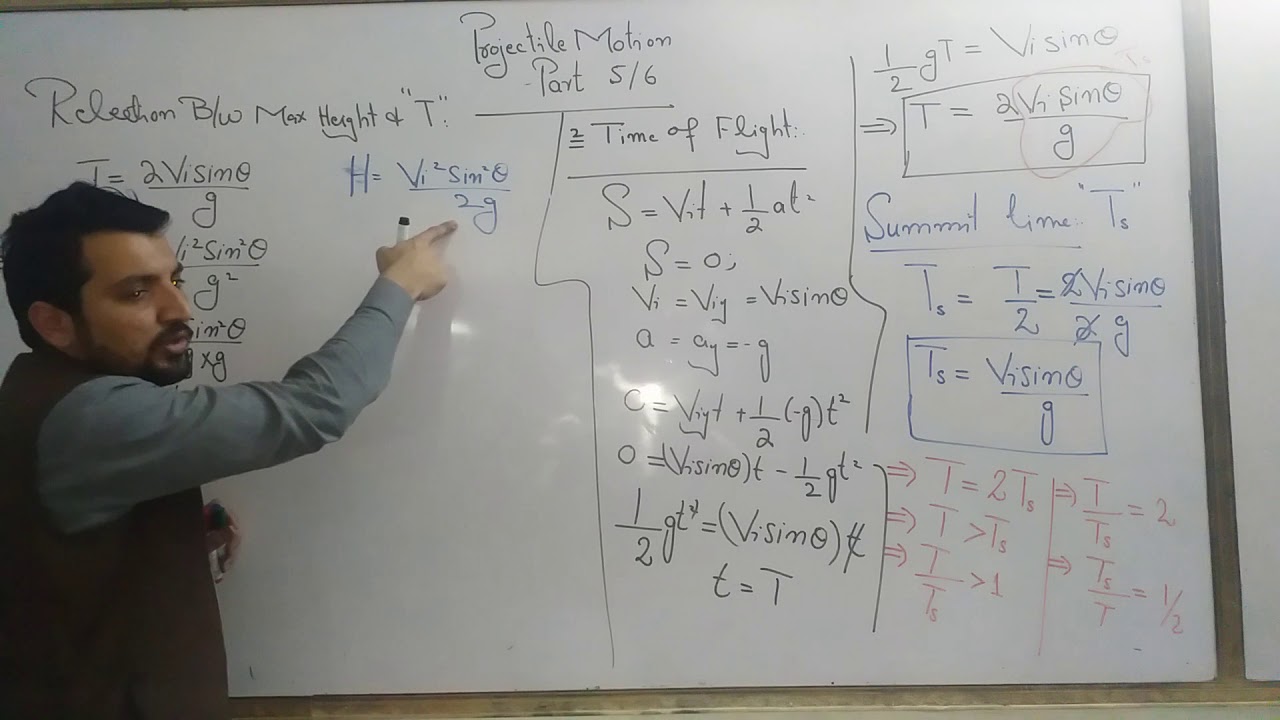 Projectile Motion
Part 5/6
Relection B/w Max Height & "T":
T = 2Visinθ/g
H = Vi²Sin²θ/2g
Vi²Sin²θ/g²
Sin²θ
×g
2 Time of Flight:
S = Vit + 1/2 at²
S = 0;
Vi = Viy = Visinθ
a = ay = -g
0 = Viyt + 1/2 (-g)t²
0 = (Visinθ)t - 1/2 gt²
1/2 gt² = (Visinθ)t
t = T
1/2 gT = Visinθ
Ts
⇒ T = 2Visinθ/g
Summit time: "Ts"
Ts = T/2 = 2Visinθ/2g
Ts = Visinθ/g
⇒ T = 2Ts
⇒ T > Ts
⇒ T/Ts > 1
⇒ T/Ts = 2
⇒ Ts/T = 1/2